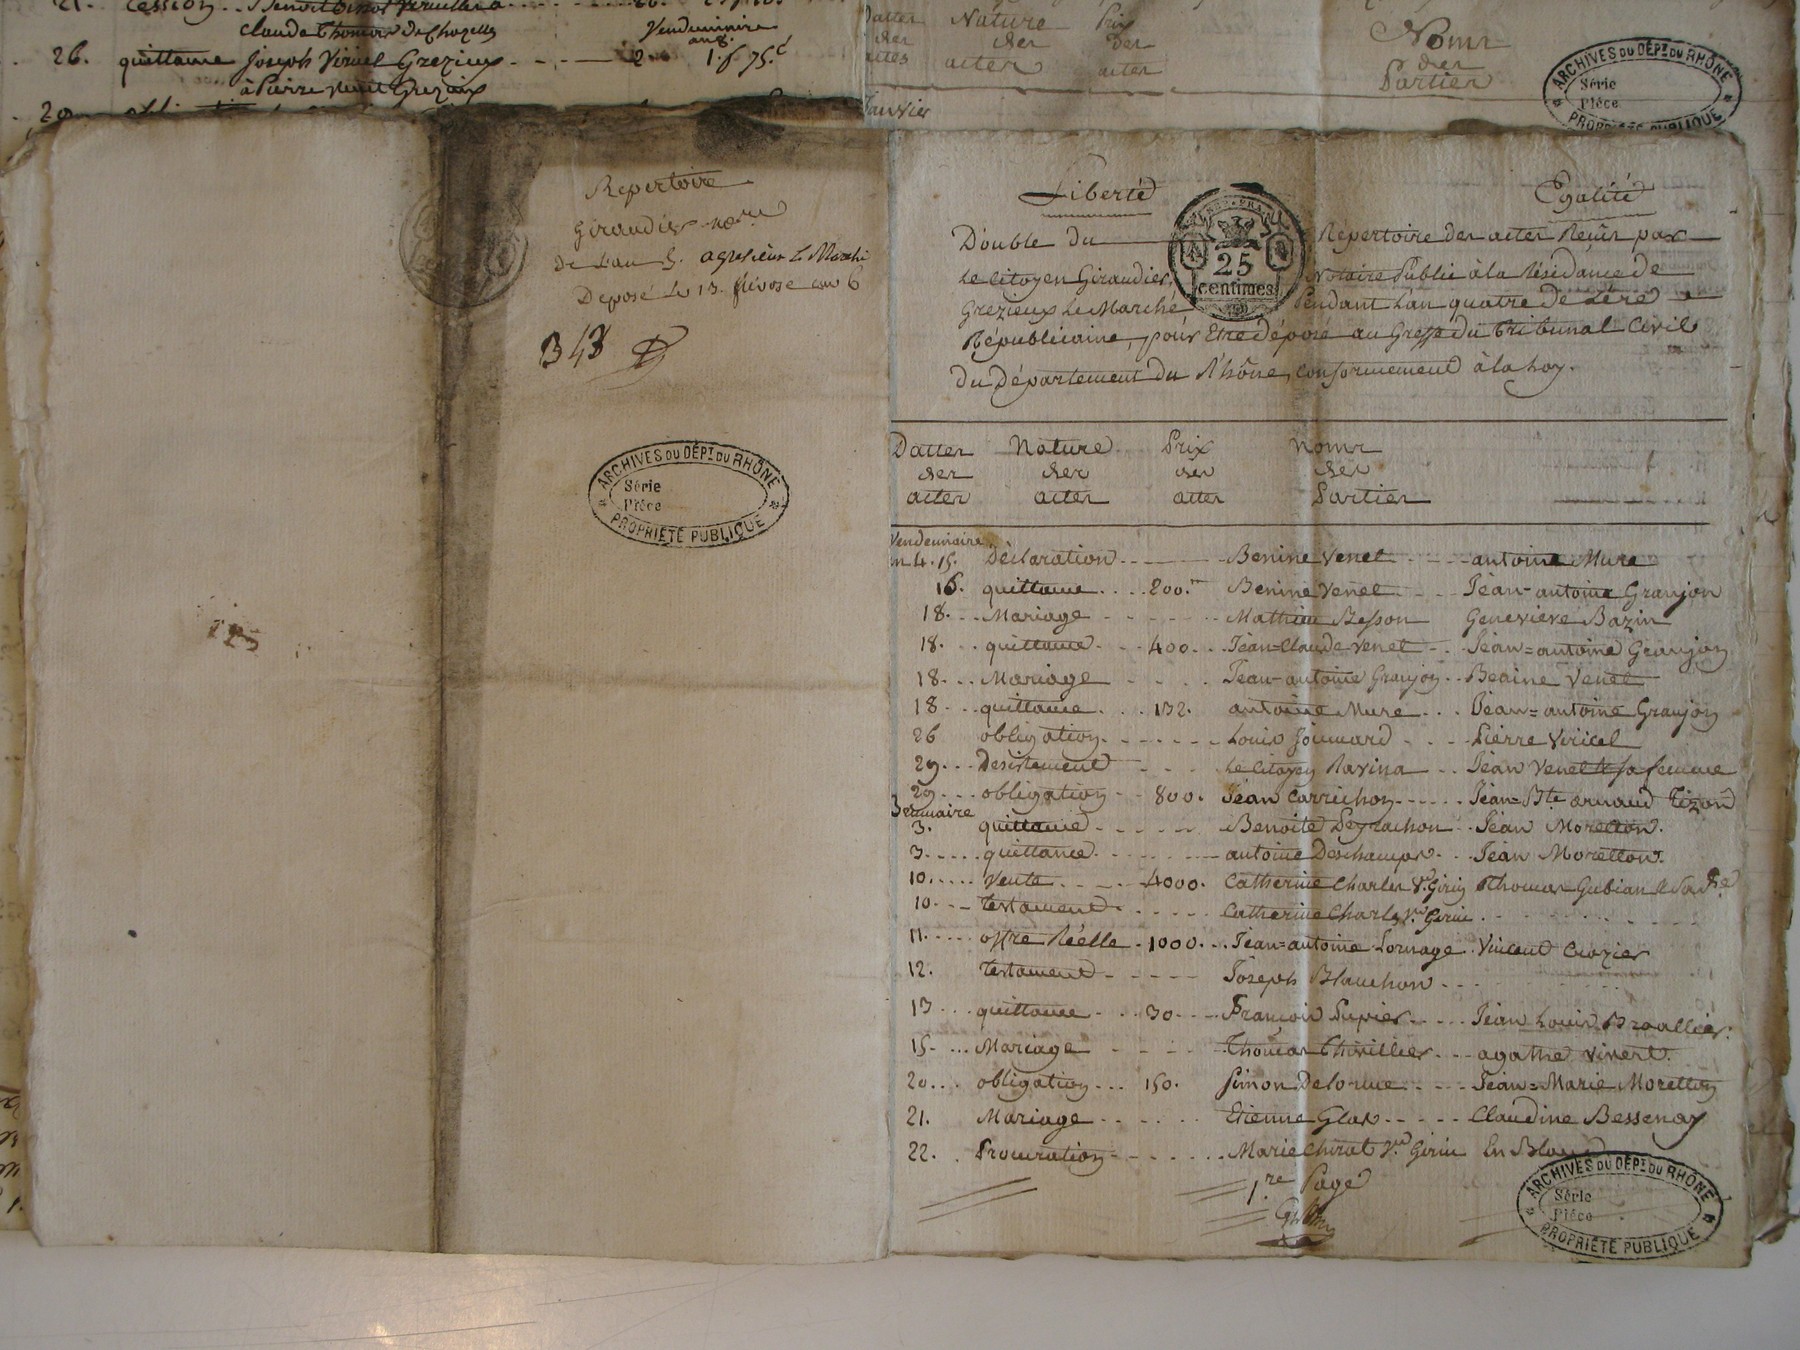 21. Cession
claude Thomas de Chazelles
Vendemiaire
an 8.
26. quittance Joseph Viricel Grezieux 2 1.f 75.c
à Pierre Grezieux
29
Dattes Nature Prix Noms
des des des des
actes actes actes Parties
Janvier
ARCHIVES DU DÉPT DU RHÔNE
Série
Pièce
PROPRIÉTÉ PUBLIQUE
Repertoire
Giraudier nore
De L'an 4. a Gresieux Le Marché
Deposé Le 13. Nivose an 6
343
ARCHIVES DU DÉPT DU RHÔNE
Série
Pièce
PROPRIÉTÉ PUBLIQUE
Liberté Egalité
25
centimes
Double du Répertoire des actes Reçus par
Le Citoyen Giraudier, Notaire Public à la Résidance de
Grezieux Le Marché Pendant L'an quatre de L'ére
Républicaine, pour Etre déposé au Greffe du Tribunal Civil
du Département du Rhône, conformement à la Loy.
Dattes Nature Prix Noms
des des des des
actes actes actes Parties
Vendemiaire
an 4. 15. Déclaration Benine Venet antoine Mure
16. quittance 200. Benine Venet Jean-antoine Granjon
18. Mariage Mathieu Besson Genevieve Bazin
18. quittance 400. Jean=Claude Venet Jean=antoine Granjon
18. Mariage Jean-antoine Granjon Benine Venet
18. quittance 132. antoine Mure Jean=antoine Granjon
26 obligation Louis Pierre Viricel
29. Desistement Le Citoyen Ravina Jean Venet et sa femme
29. obligation 800. Jean Carrichon Jean=Bte arnaud Tizon
Brumaire
3. quittance Benoite Jean Moretton.
3. quittance antoine Deschamps Jean Moretton.
10. Vente 4000. Catherine Charles Ve. Girin Thomas Gubian
10. Testament Catherine Charles Ve. Girin
11. offre Réelle 1000. Jean=antoine Lornage Vincent Crozier
12. Testament Joseph Blanchon
13. quittance 30. François Pupier Jean Louis
15. Mariage Thomas Thivillier agathe Vivert.
20. obligation 150. Simon Delorme Jean=Marie Moretton
21. Mariage Etienne Glas Claudine Bessenay
22. Procuration Marie Chirat Ve. Girin En Blanc
1.re Page
ARCHIVES DU DÉPT DU RHÔNE
Série
Pièce
PROPRIÉTÉ PUBLIQUE